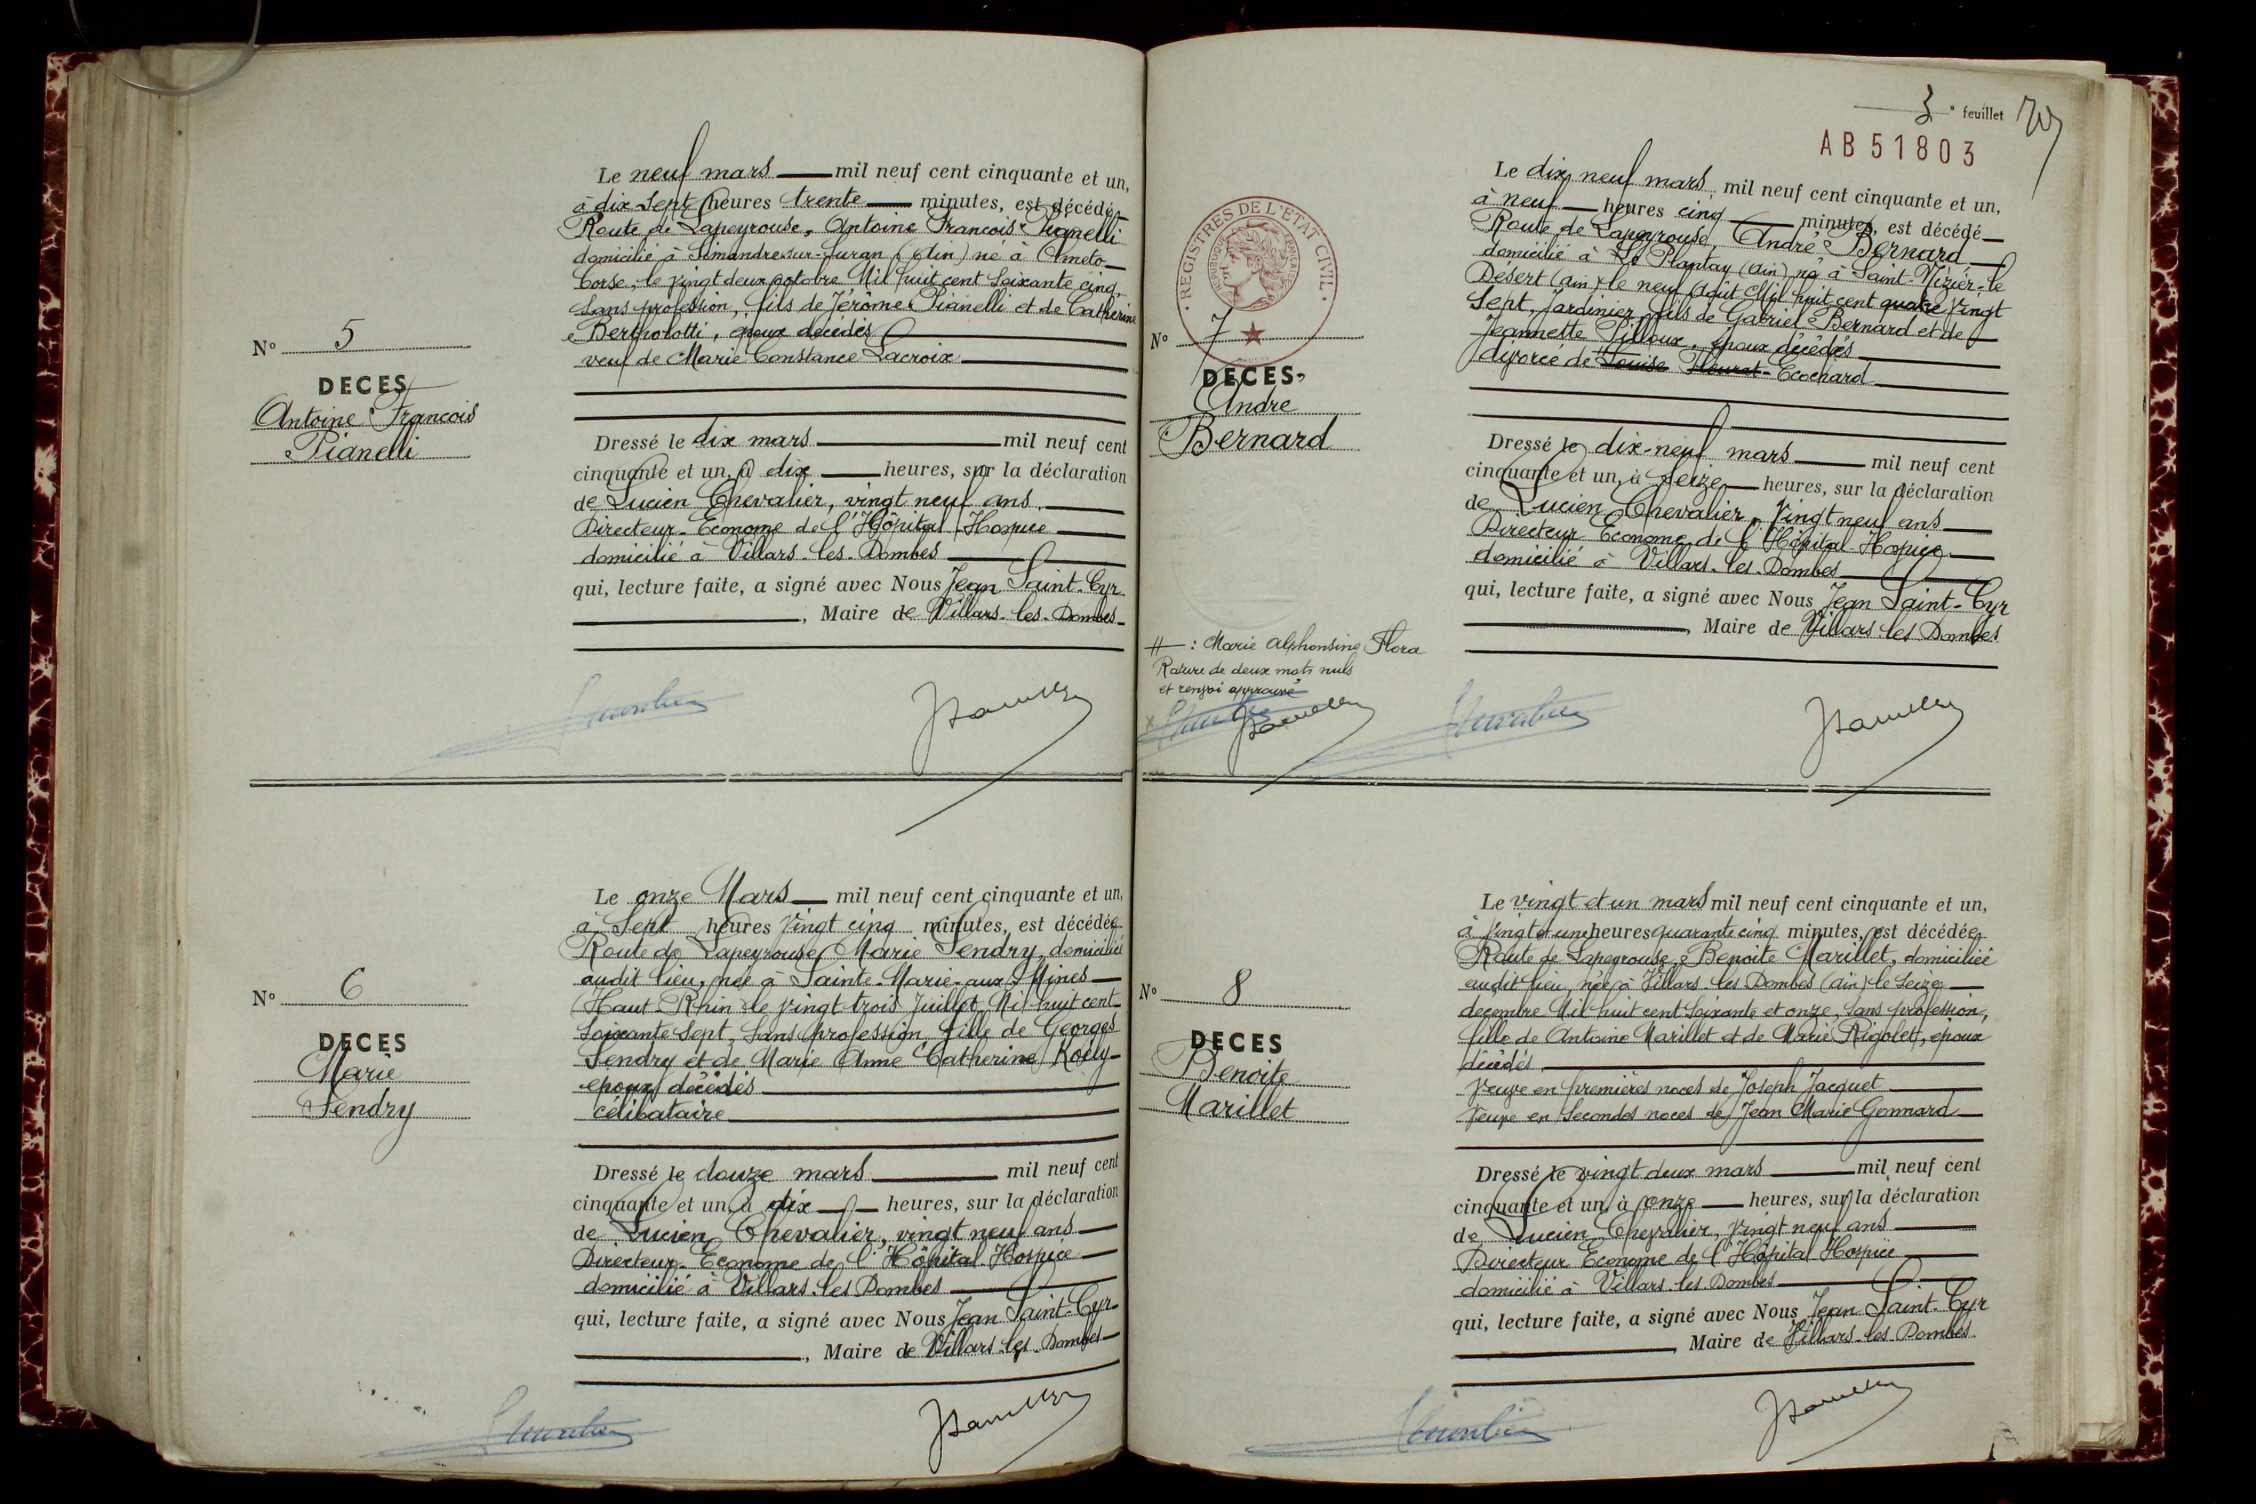 Le neuf mars mil neuf cent cinquante et un,
à dix Sept heures trente minutes, est décédé
Route de Lapeyrouse, Antoine Francois Pianelli
domicilié à Simandre-sur-Suran (Ain) né à Olmeto
Corse, le vingt deux octobre Mil huit cent Soixante cinq,
Sans profession, fils de Jérôme Pianelli et de Catherine
Bertholotti, époux décédés
veuf de Marie Constance Lacroix
N° 5
DECES
Antoine Francois
Pianelli
Dressé le dix mars mil neuf cent
cinquante et un, à dix heures, sur la déclaration
de Lucien Chevalier, vingt neuf ans
Directeur-Econome de l'Hôpital Hospice
domicilié à Villars-les-Dombes
qui, lecture faite, a signé avec Nous Jean Saint-Cyr
, Maire de Villars-les-Dombes
Le onze Mars mil neuf cent cinquante et un,
à Sept heures Vingt cinq minutes, est décédée
Route de Lapeyrouse, Marie Sendry, domiciliée
audit lieu, née à Sainte-Marie-aux-Mines
(Haut-Rhin) le vingt trois Juillet Mil huit cent
Soixante Sept, Sans profession, fille de Georges
Sendry et de Marie Anne Catherine
époux décédés
célibataire
N° 6
DECES
Marie
Sendry
Dressé le douze mars mil neuf cent
cinquante et un, à dix heures, sur la déclaration
de Lucien Chevalier, vingt neuf ans
Directeur-Econome de l'Hôpital Hospice
domicilié à Villars-les Dombes
qui, lecture faite, a signé avec Nous Jean Saint-Cyr
, Maire de Villars-les-Dombes
3e feuillet
AB51803
REGISTRES DE L'ETAT CIVIL
Le dix neuf mars mil neuf cent cinquante et un,
à neuf heures cinq minutes, est décédé
Route de Lapeyrouse, André Bernard
domicilié à Le Plantay (Ain) né à Saint-Nizier-le
Désert (Ain) le neuf Août Mil huit cent quatre vingt
Sept, Jardinier, fils de Gabriel Bernard et de
Jeannette Pilloux, époux décédés
divorcé de Louise Fleurat-Ecochard
N° 7
DECES
André
Bernard
Dressé le dix-neuf mars mil neuf cent
cinquante et un, à Seize heures, sur la déclaration
de Lucien Chevalier, Vingt neuf ans
Directeur Econome de l'Hôpital-Hospice
domicilié à Villars-les-Dombes
qui, lecture faite, a signé avec Nous Jean Saint-Cyr
, Maire de Villars-les Dombes
: Marie Alphonsine Flora
Rature de deux mots nuls
et renvoi approuvé
Le vingt et un mars mil neuf cent cinquante et un,
à vingt et une heures quarante cinq minutes, est décédée
Route de Lapeyrouse, Benoite Marillet, domiciliée
audit lieu, née à Villars-les Dombes (Ain) le Seize
décembre Mil huit cent Soixante et onze, Sans profession,
fille de Antoine Marillet et de Marie Rigolet, époux
décédés
Veuve en premières noces de Joseph Jacquet
Veuve en Secondes noces de Jean Marie Gonnard
N° 8
DECES
Benoite
Marillet
Dressé le vingt deux mars mil neuf cent
cinquante et un, à onze heures, sur la déclaration
de Lucien Chevalier, Vingt neuf ans
Directeur Econome de l'Hôpital Hospice
domicilié à Villars-les Dombes
qui, lecture faite, a signé avec Nous Jean Saint-Cyr
, Maire de Villars-les-Dombes